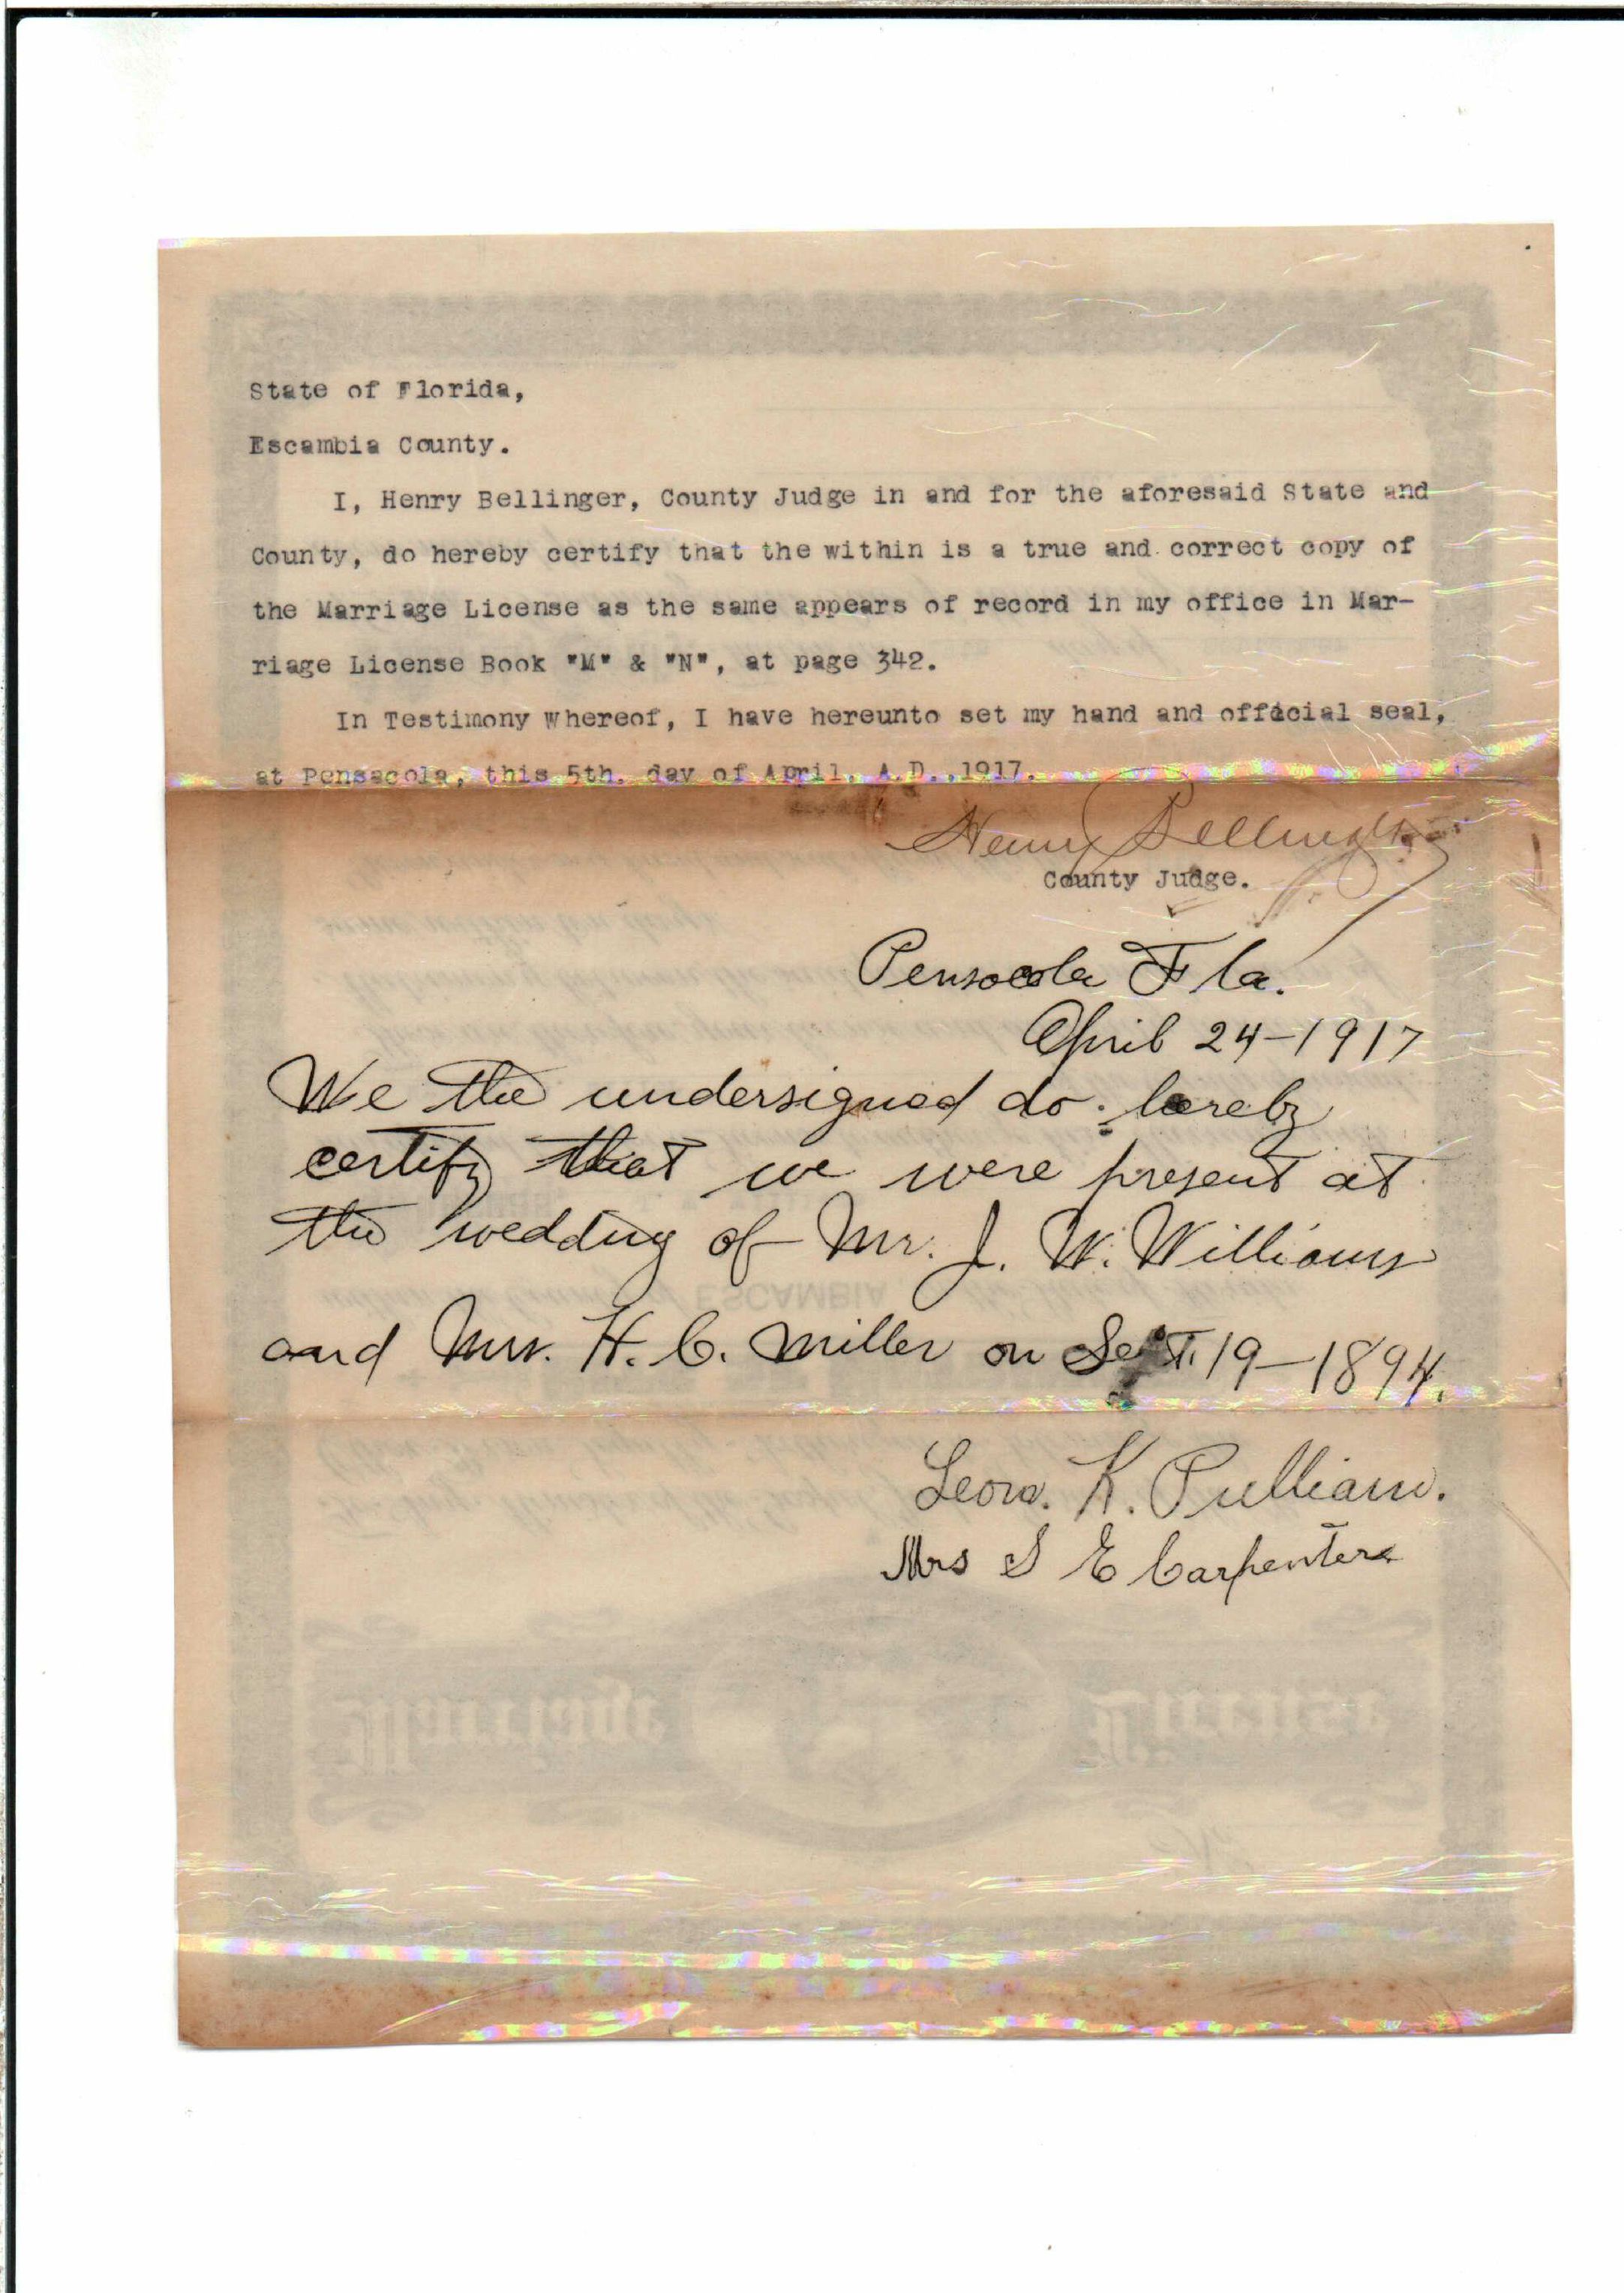 State of Florida,
Escambia County.
I, Henry Bellinger, County Judge in and for the aforesaid State and
County, do hereby certify that the within is a true and correct copy of
the Marriage License as the same appears of record in my office in Mar-
riage License Book "M" & "N", at page 342.
In Testimony Whereof, I have hereunto set my hand and official seal,
at Pensacola, this 5th. day of April, A.D.,1917.
Henry Bellinger
County Judge.
Pensacola Fla.
April 24-1917
We the undersigned do hereby
certify that we were present at
the wedding of Mr. J. W. Williams
and Mrs. H. C. Miller on Sept. 19-1894.
Leora. K. Pulliam.
Mrs S E Carpenter
ESCAMBIA
Marriage License